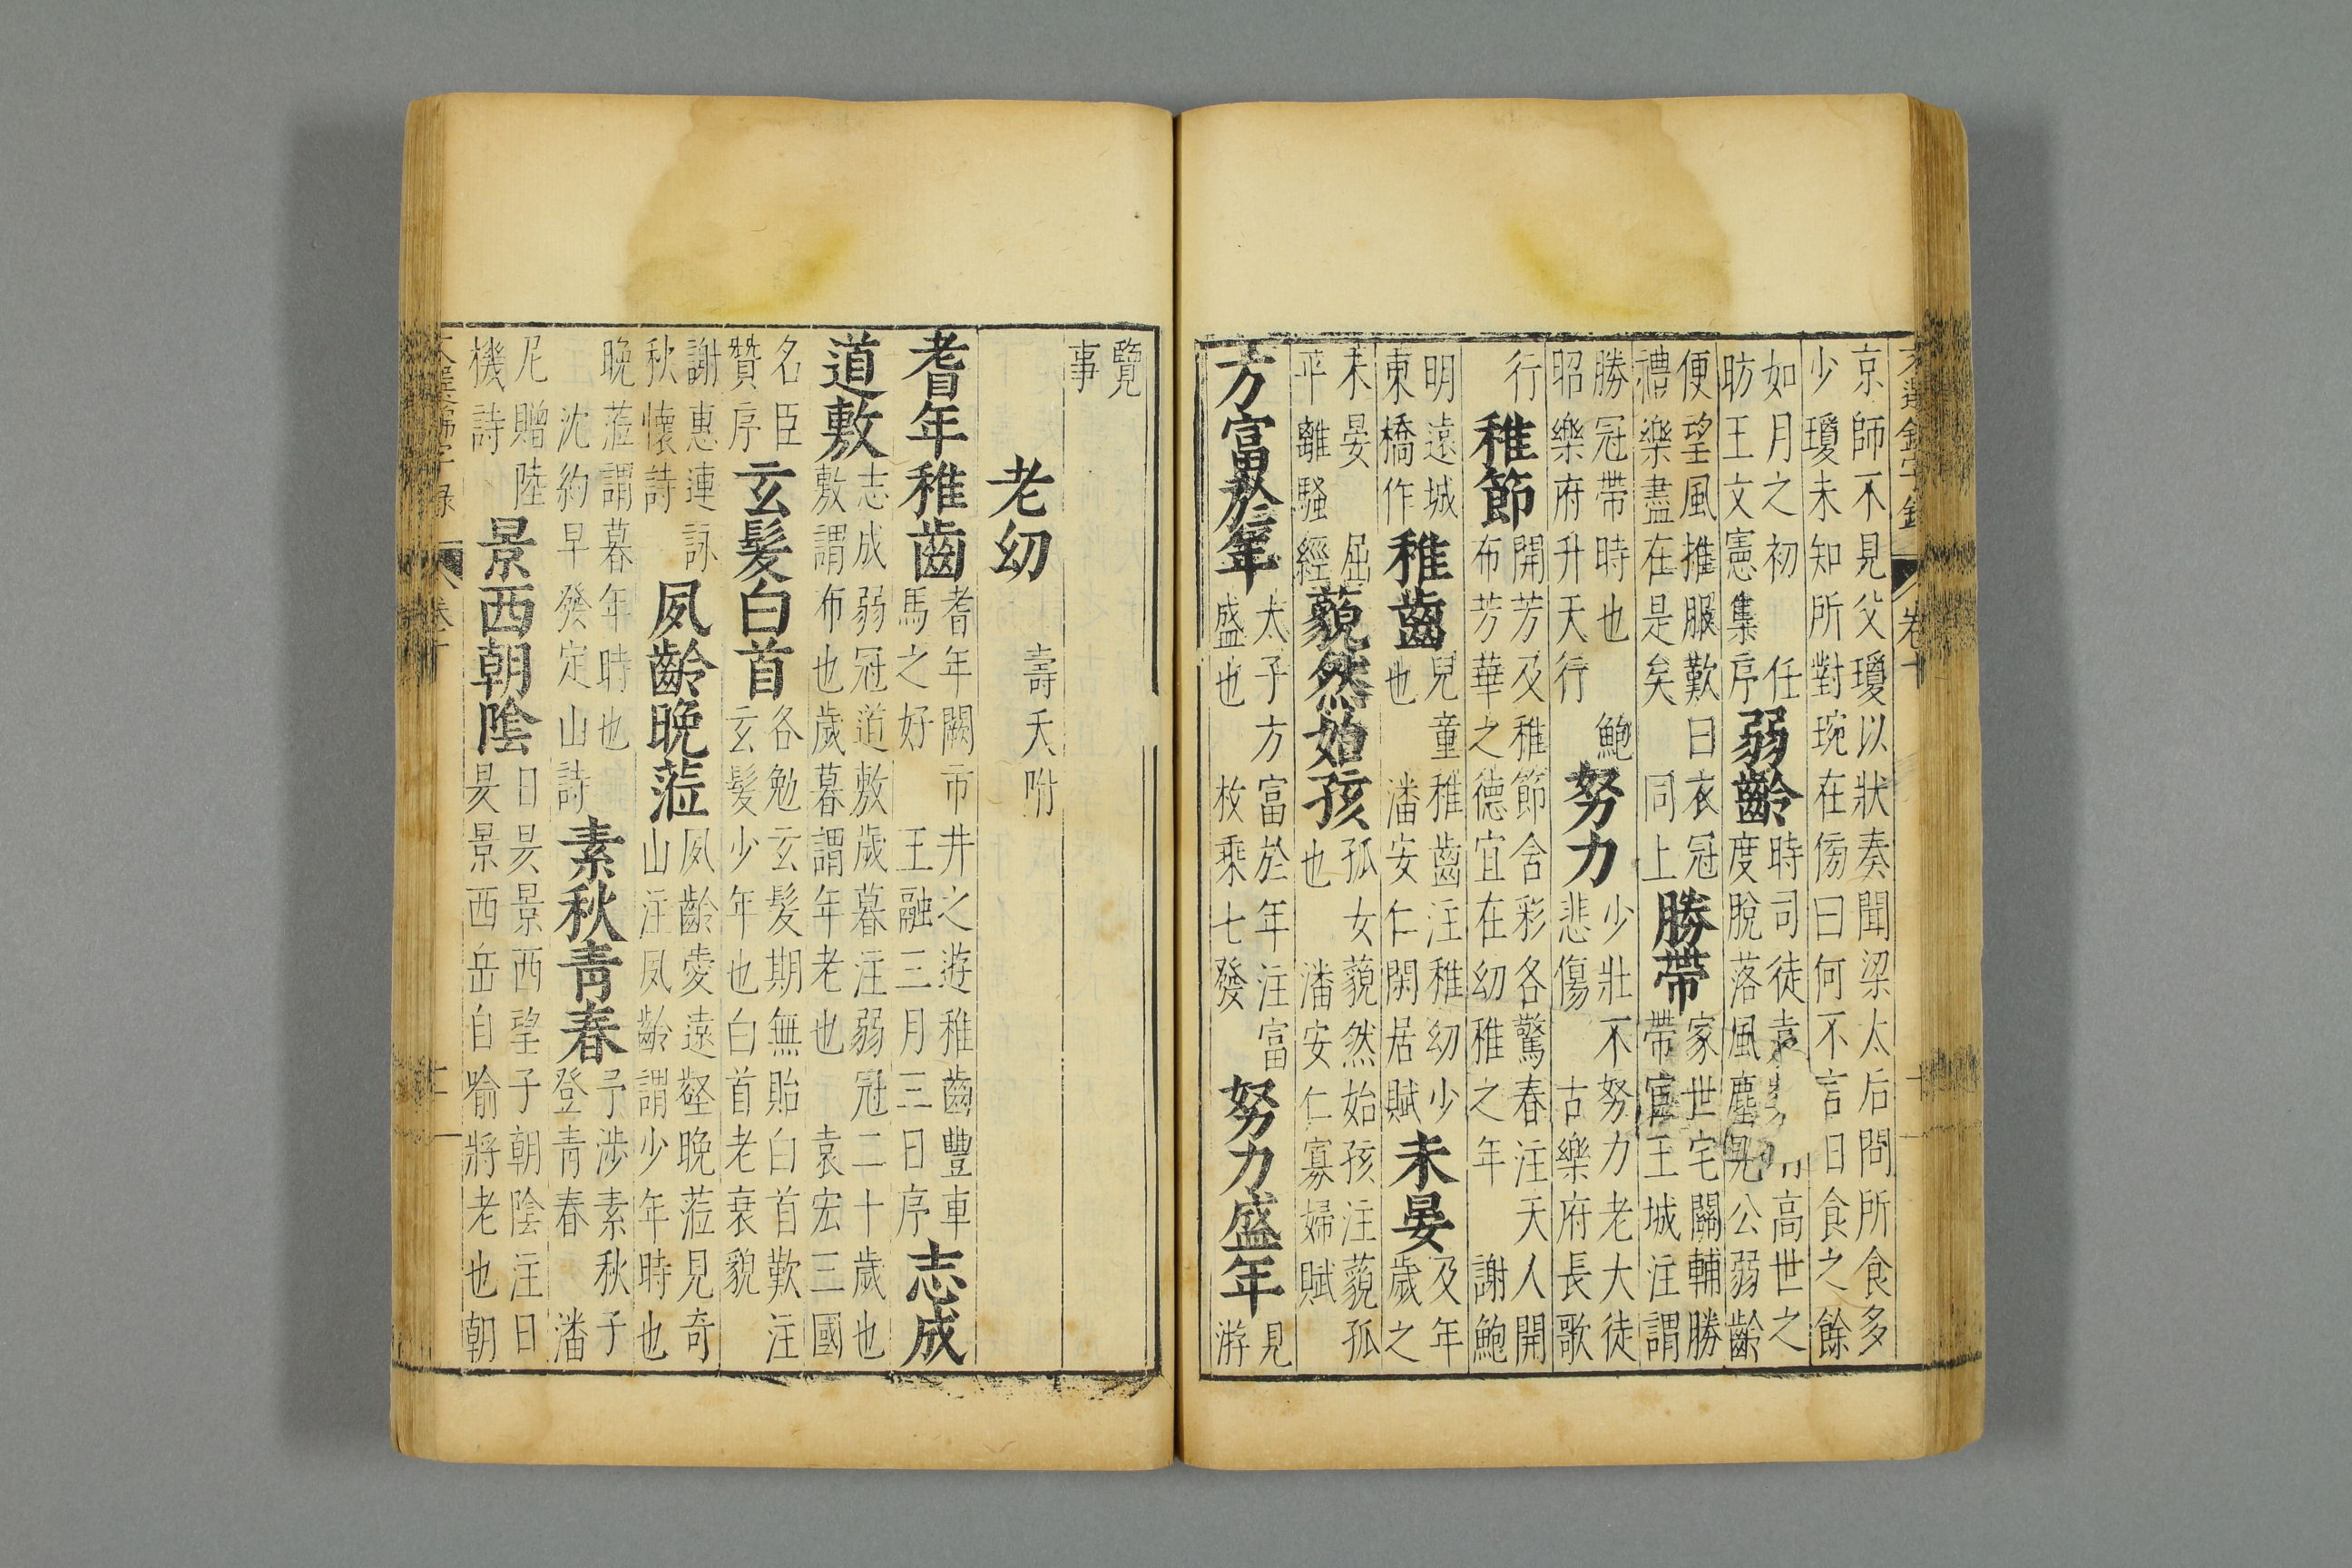 文選錦字錄 卷十
京師不見父瓊以狀奏聞梁太后問所食多
少瓊未知所對琬在傍曰何不言日食之餘
如月之初 任
昉王文憲集序
弱齡
時司徒袁 高世之
度脫落風塵見公弱齡
便望風推服歎曰衣冠
禮樂盡在是矣 同上
勝帶
家世宅關輔勝
帶宦王城注謂
勝冠帶時也 鮑
昭樂府升天行
努力
少壯不努力老大徒
悲傷 古樂府長歌
行
稚節
開芳及稚節含彩各驚春注天人開
布芳華之德宜在幼稚之年 謝鮑
明遠城
東橋作
稚齒
兒童稚齒注稚幼少
也 潘安仁閑居賦
未晏
及年
歲之
未晏 屈
平離騷經
藐然始孩
孤女藐然始孩注藐孤
也 潘安仁寡婦賦
方富於年
太子方富於年注富
盛也 枚乘七發
努力盛年
見
游
覽
事
老幼 壽夭附
耆年稚齒
耆年闕市井之遊稚齒豐車
馬之好 王融三月三日序
志成
道敷
志成弱冠道敷歲暮注弱冠二十歲也
敷謂布也歲暮謂年老也 袁宏三國
名臣
贊序
玄髮白首
各勉玄髮期無貽白首歎注
玄髮少年也白首老衰貌
謝惠連詠
秋懷詩
夙齡晚蒞
夙齡愛遠壑晚蒞見奇
山注夙齡謂少年時也
晚蒞謂暮年時也
沈約早發定山詩
素秋青春
予涉素秋子
登青春 潘
尼贈陸
機詩
景西朝陰
日昃景西望子朝陰注日
昃景西岳自喻將老也朝